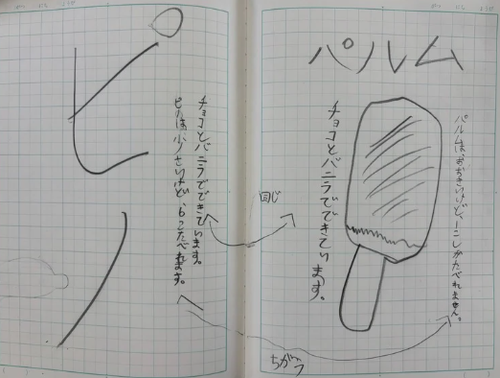 パルム
パルムは、おおきいけど、一こしかたべれません。
チョコとバニラでできています。
同じ
ちがう
ピノ
チョコとバニラでできています。
ピノは小さいけど、6こたべれます。